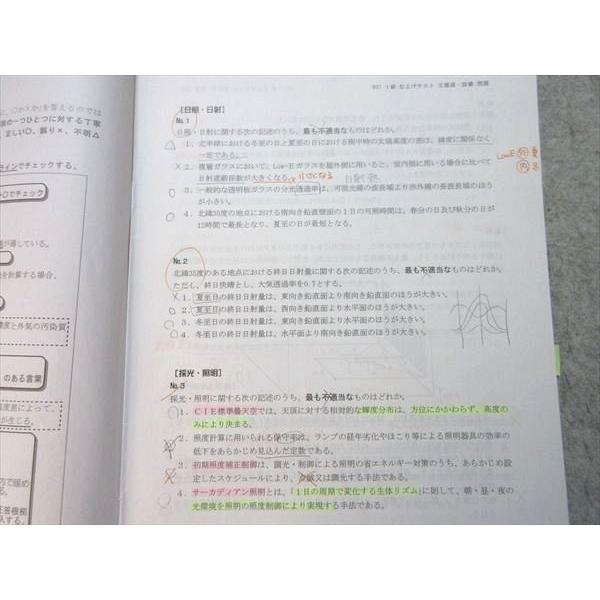 [日照・日射]
№1
日照・日射に関する次の記述のうち、最も不適当なものはどれか。
△ 1. 北半球における冬至の日と夏至の日における南中時の太陽高度の差は、緯度に関係なく
一定である。
× 2. 複層ガラスにおいて、Low-Eガラスを屋外側に用いると、室内側に用いる場合に比べて
日射遮蔽係数が大きくなる。 小さくなる 日射熱
○ 3. 一般的な透明板ガラスの分光透過率は、可視光線の波長域より赤外線の長波長域のほう
が小さい。
○ 4. 北緯35度の地点における南向き鉛直壁面の1日の可照時間は、春分の日及び秋分の日が
12時間で最長となり、夏至の日が最短となる。
Low-E 夏
冬
№2
北緯35度のある地点における終日日射量に関する次の記述のうち、最も不適当なものはどれか。
ただし、終日快晴とし、大気透過率を0.7とする。
× 1. 夏至日の終日日射量は、東向き鉛直面より南向き鉛直面のほうが大きい。
○ 2. 夏至日の終日日射量は、西向き鉛直面より水平面のほうが大きい。
○ 3. 冬至日の終日日射量は、東向き鉛直面より水平面のほうが大きい。
○ 4. 冬至日の終日日射量は、水平面より南向き鉛直面のほうが大きい。
[採光・照明]
№3
採光・照明に関する次の記述のうち、最も不適当なものはどれか。
○ 1. CIE標準曇天空では、天頂に対する相対的な輝度分布は、方位にかかわらず、高度の
みにより決まる。
2. 照度計算に用いられる保守率は、ランプの経年劣化やほこり等による照明器具の効率の
低下をあらかじめ見込んだ定数である。
× 3. 初期照度補正制御は、調光・制御による照明の省エネルギー対策のうち、あらかじめ設
定したスケジュールにより、点滅又は調光する手法である。
4. サーカディアン照明とは、「1日の周期で変化する生体リズム」に則して、朝・昼・夜の
光環境を照明の照度制御により実現する手法である。
○か×か」を答えるのでは
の一つひとつに対する丁寧
正しい○、誤り×、不明△
ラインでチェックする。
○でチェック
が適している。
を計算する場合、
度と外気の汚染質
のある言葉
温度差によって、
が生じる。